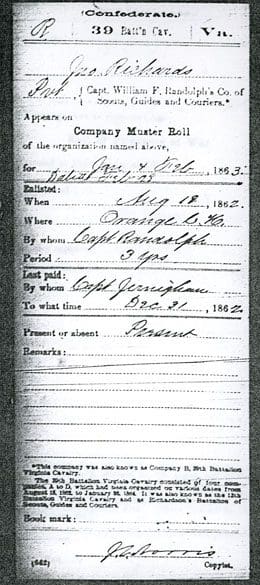 (Confederate.)
R 39 Batt'n Cav. Va.
Jno Richards
Pvt { Capt. William F. Randolph's Co. of
Scouts, Guides and Couriers.*
Appears on
Company Muster Roll
of the organization named above,
for Jan & Feb, 1863.
Enlisted:
When Aug 18, 1862.
Where Orange C. H.
By whom Capt Randolph
Period 3 yrs
Last paid:
By whom Capt Jernigham
To what time Dec 31, 1862.
Present or absent Present
Remarks:
*This company was also known as Company B, 39th Battalion
Virginia Cavalry.
The 39th Battalion Virginia Cavalry consisted of four com-
panies, A to D, which had been organized on various dates from
August 18, 1862, to January 26, 1864. It was also known as the 13th
Battalion Virginia Cavalry and as Richardson's Battalion of
Scouts, Guides and Couriers.
Book mark:
(642) Copyist.